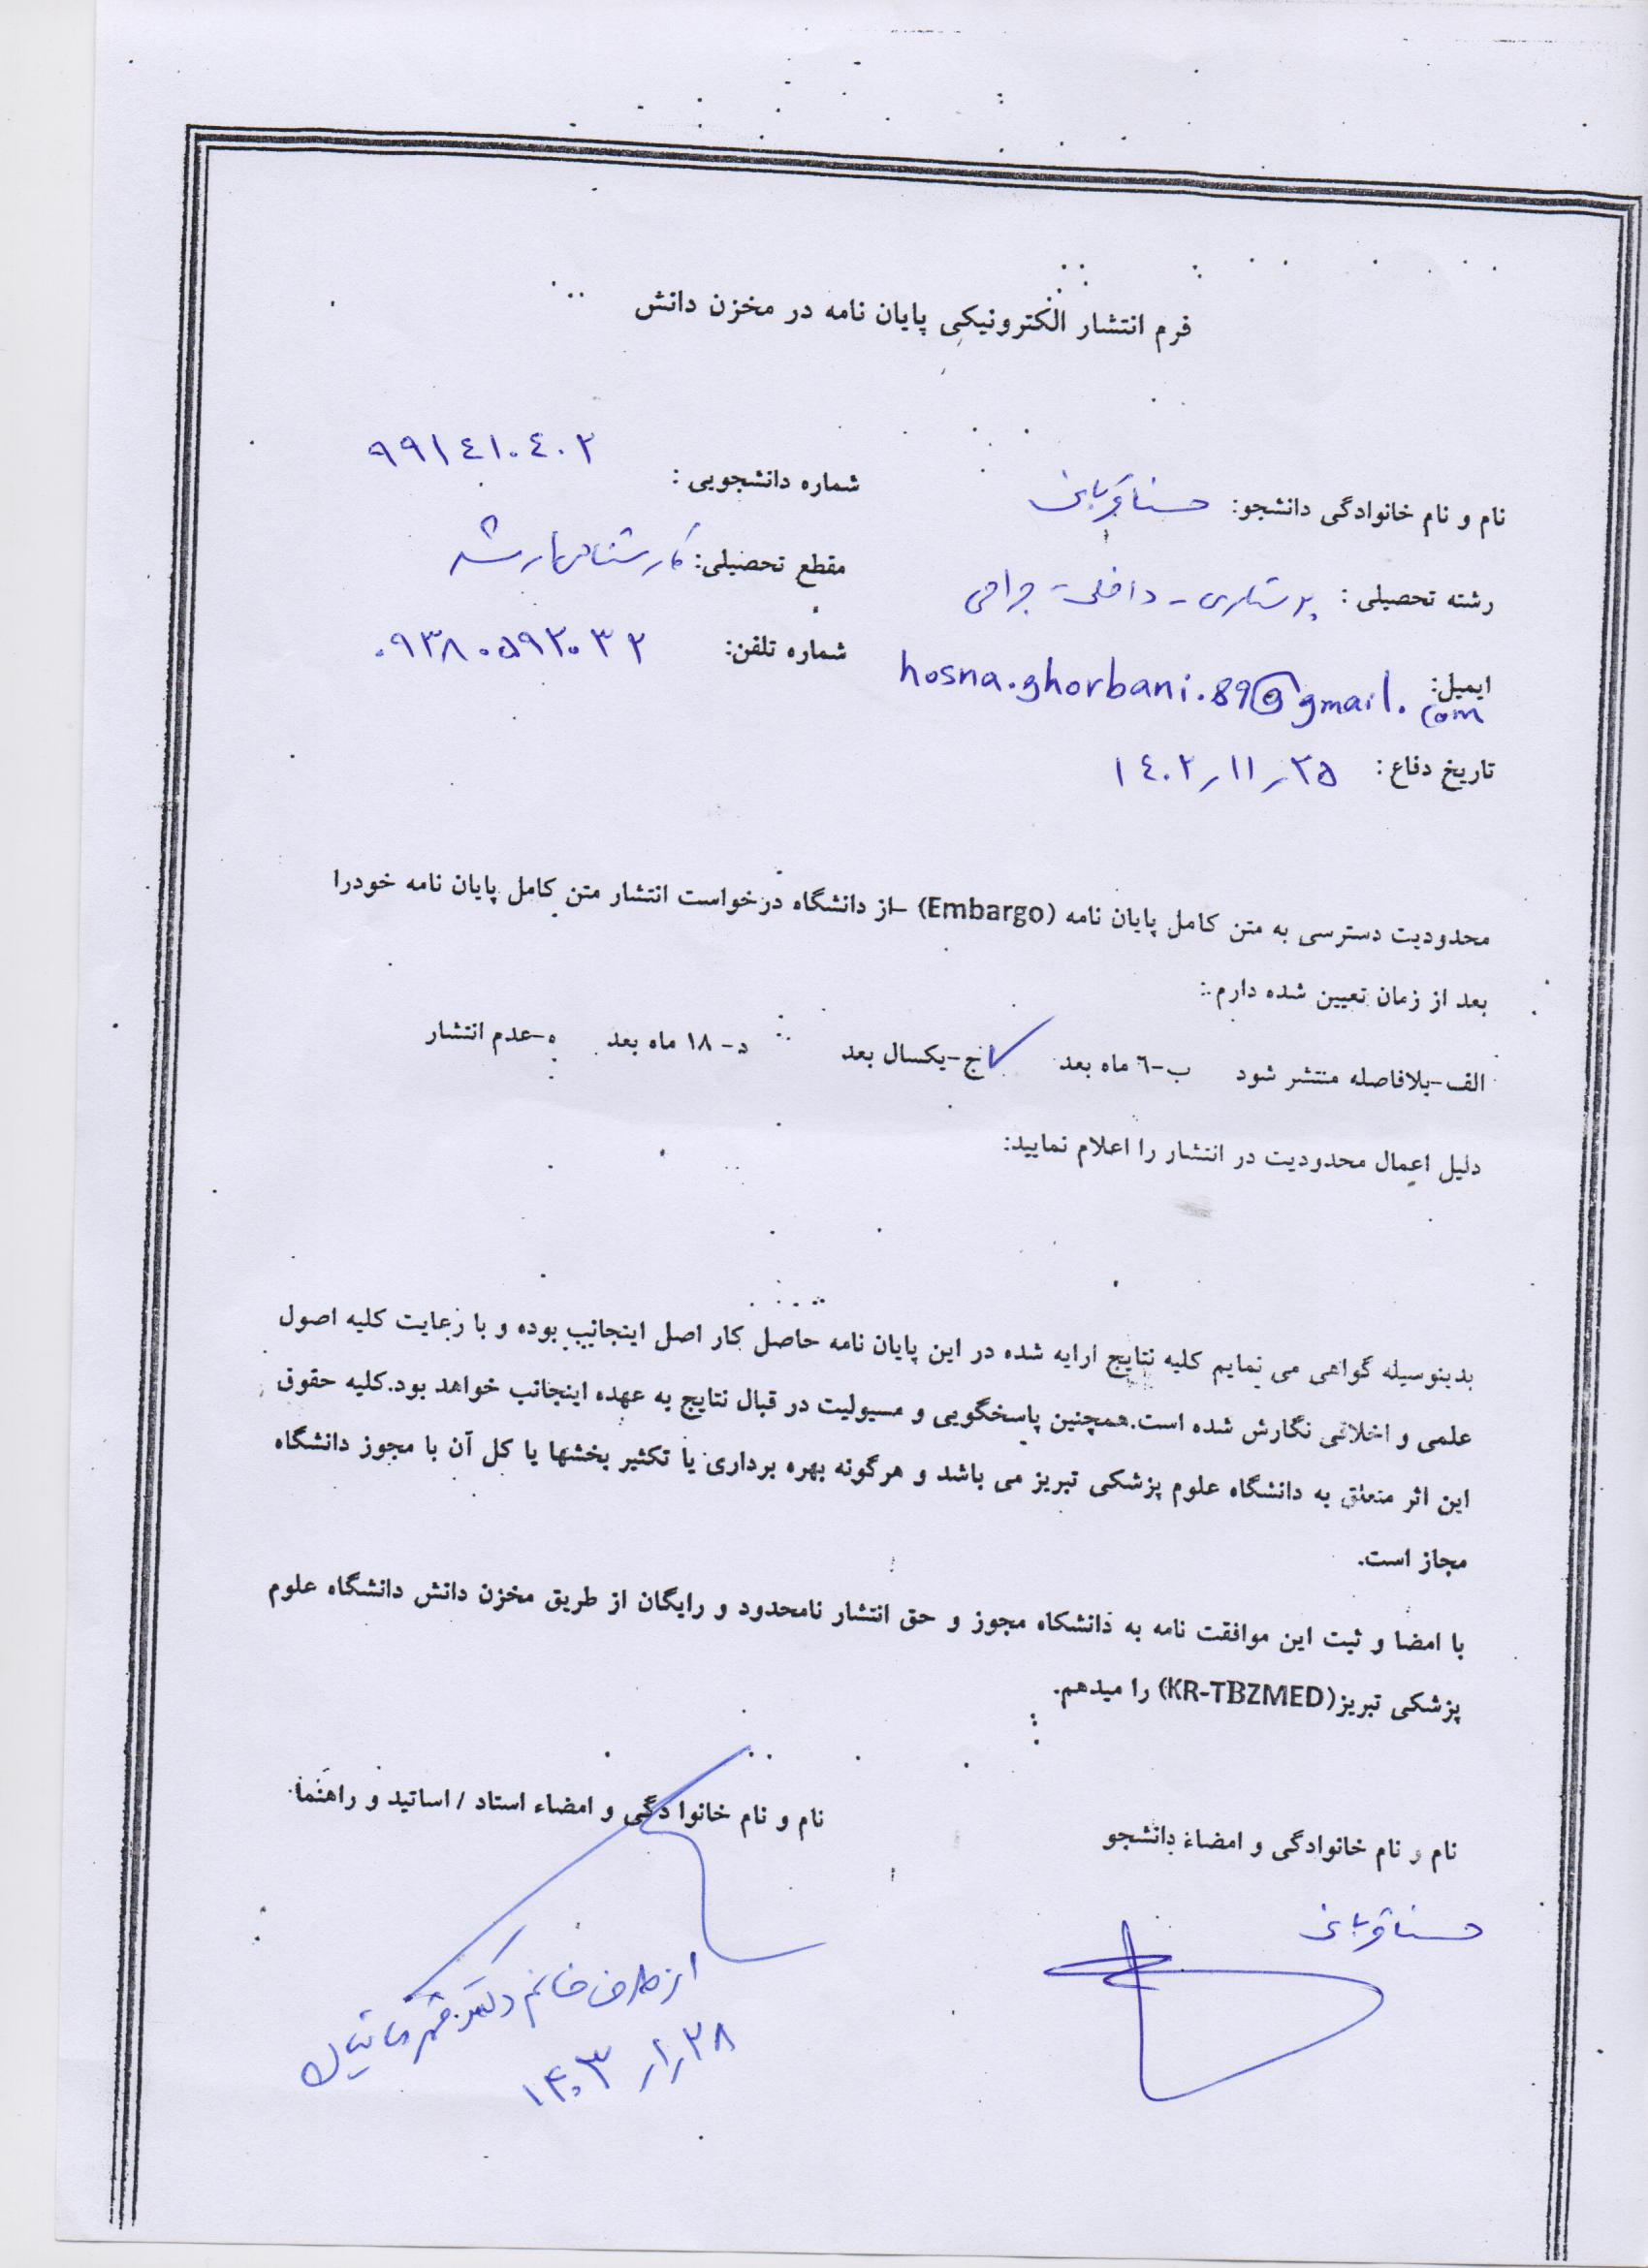 فرم انتشار الکترونیکی پایان نامه در مخزن دانش
نام و نام خانوادگی دانشجو: حسنا قربانی شماره دانشجویی: ۹۹۱٤۱۰٤۰۲
رشته تحصیلی: پرستاری - داخلی - جراحی مقطع تحصیلی: کارشناسی ارشد
ایمیل: hosna.ghorbani.89@gmail.com شماره تلفن: ۰۹۳۸۰۵۹۲۰۳۲
تاریخ دفاع: ۱٤۰۲٫۱۱٫۲۵
محدودیت دسترسی به متن کامل پایان نامه (Embargo) -از دانشگاه درخواست انتشار متن کامل پایان نامه خودرا
بعد از زمان تعیین شده دارم:
الف-بلافاصله منتشر شود ب-٦ ماه بعد ✓ج-یکسال بعد د-۱۸ ماه بعد ه-عدم انتشار
دلیل اعمال محدودیت در انتشار را اعلام نمایید:
بدینوسیله گواهی می نمایم کلیه نتایج ارایه شده در این پایان نامه حاصل کار اصل اینجانب بوده و با رعایت کلیه اصول
علمی و اخلاقی نگارش شده است.همچنین پاسخگویی و مسیولیت در قبال نتایج به عهده اینجانب خواهد بود.کلیه حقوق
این اثر متعلق به دانشگاه علوم پزشکی تبریز می باشد و هرگونه بهره برداری یا تکثیر بخشها یا کل آن با مجوز دانشگاه
مجاز است.
با امضا و ثبت این موافقت نامه به دانشکاه مجوز و حق انتشار نامحدود و رایگان از طریق مخزن دانش دانشگاه علوم
پزشکی تبریز(KR-TBZMED) را میدهم.
نام و نام خانوادگی و امضاء دانشجو نام و نام خانوادگی و امضاء استاد / اساتید و راهنما
حسنا قربانی
از طرف خانم دکتر قهرمانیان
۱۴۰۳٫۱٫۲۸